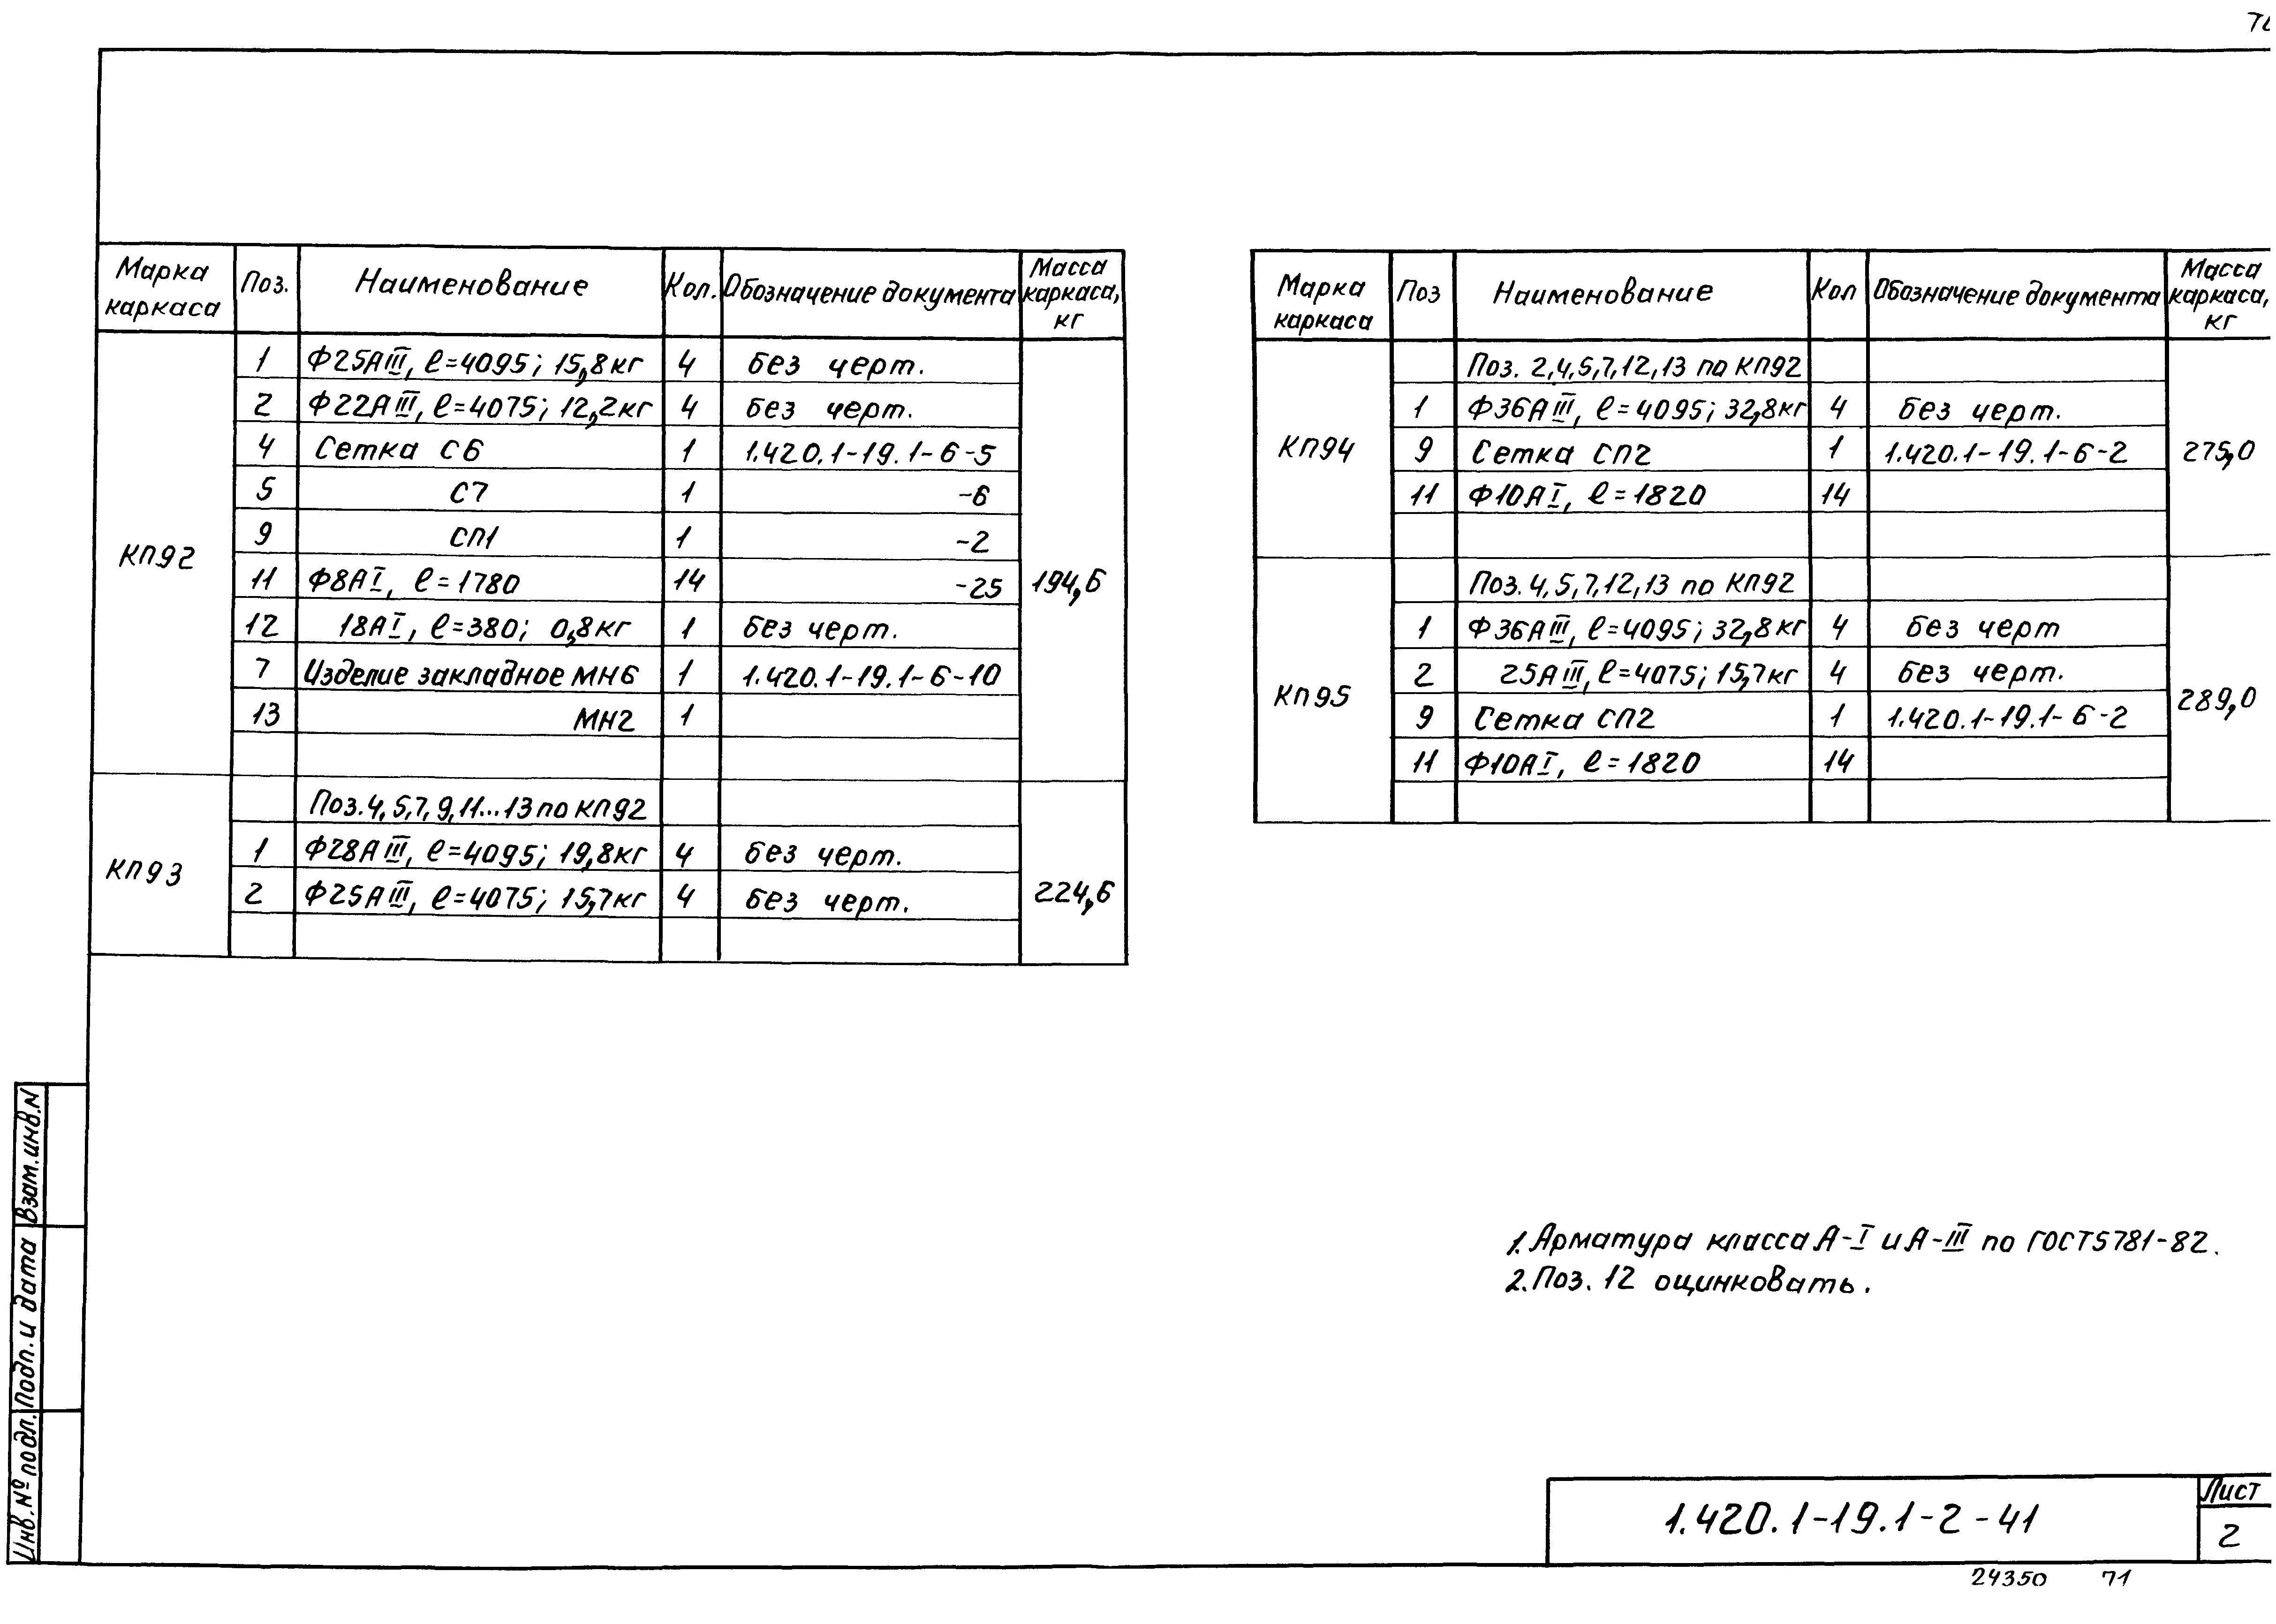 Марка каркаса | Поз. | Наименование | Кол. | Обозначение документа | Масса каркаса, кг
КП92 | 1 | Ф25АIII, ℓ=4095; 15,8кг | 4 | без черт. | 194,6
2 | Ф22АIII, ℓ=4075; 12,2кг | 4 | без черт.
4 | Сетка С6 | 1 | 1.420.1-19.1-6-5
5 | С7 | 1 | -6
9 | СП1 | 1 | -2
11 | Ф8АI, ℓ=1780 | 14 | -25
12 | 18АI, ℓ=380; 0,8кг | 1 | без черт.
7 | Изделие закладное МН6 | 1 | 1.420.1-19.1-6-10
13 | МН2 | 1
КП93 | Поз. 4, 5, 7, 9, 11...13 по КП92 | 224,6
1 | Ф28АIII, ℓ=4095; 19,8кг | 4 | без черт.
2 | Ф25АIII, ℓ=4075; 15,7кг | 4 | без черт.
Марка каркаса | Поз | Наименование | Кол | Обозначение документа | Масса каркаса, кг
КП94 | Поз. 2,4,5,7,12,13 по КП92 | 275,0
1 | Ф36АIII, ℓ=4095; 32,8кг | 4 | без черт.
9 | Сетка СП2 | 1 | 1.420.1-19.1-6-2
11 | Ф10АI, ℓ=1820 | 14
КП95 | Поз. 4, 5, 7, 12, 13 по КП92 | 289,0
1 | Ф36АIII, ℓ=4095; 32,8кг | 4 | без черт
2 | 25АIII, ℓ=4075; 15,7кг | 4 | без черт.
9 | Сетка СП2 | 1 | 1.420.1-19.1-6-2
11 | Ф10АI, ℓ=1820 | 14
1. Арматура класса А-I и А-III по ГОСТ5781-82.
2. Поз. 12 оцинковать.
Инв.№ подл. Подп. и дата Взам.инв.N
1.420.1-19.1-2-41
Лист
2
24350 71